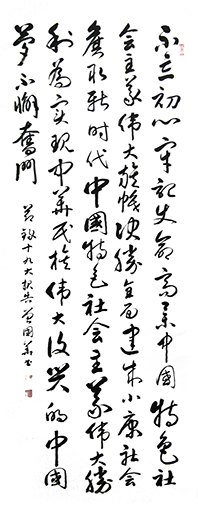 不忘初心牢记使命高举中國特色社
会主义伟大旗帜决胜全面建成小康社会
奪取新时代中國特色社会主义伟大勝
利為实现中華民族伟大复兴的中國
梦不懈奮鬥
十九大报告國華书